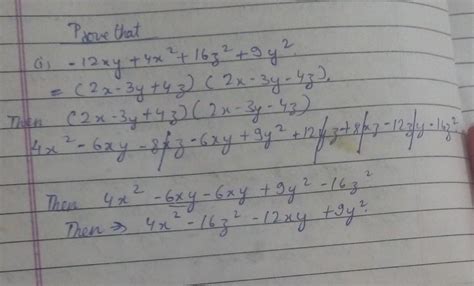 Prove that
(i) -12xy + 4x² + 16z² + 9y²
= (2x - 3y + 4z) (2x - 3y - 4z).
Then (2x - 3y + 4z) (2x - 3y - 4z)
4x² - 6xy - 8xz - 6xy + 9y² + 12yz + 8xz - 12zy - 16z²
Then 4x² - 6xy - 6xy + 9y² - 16z²
Then ⇒ 4x² - 16z² - 12xy + 9y².